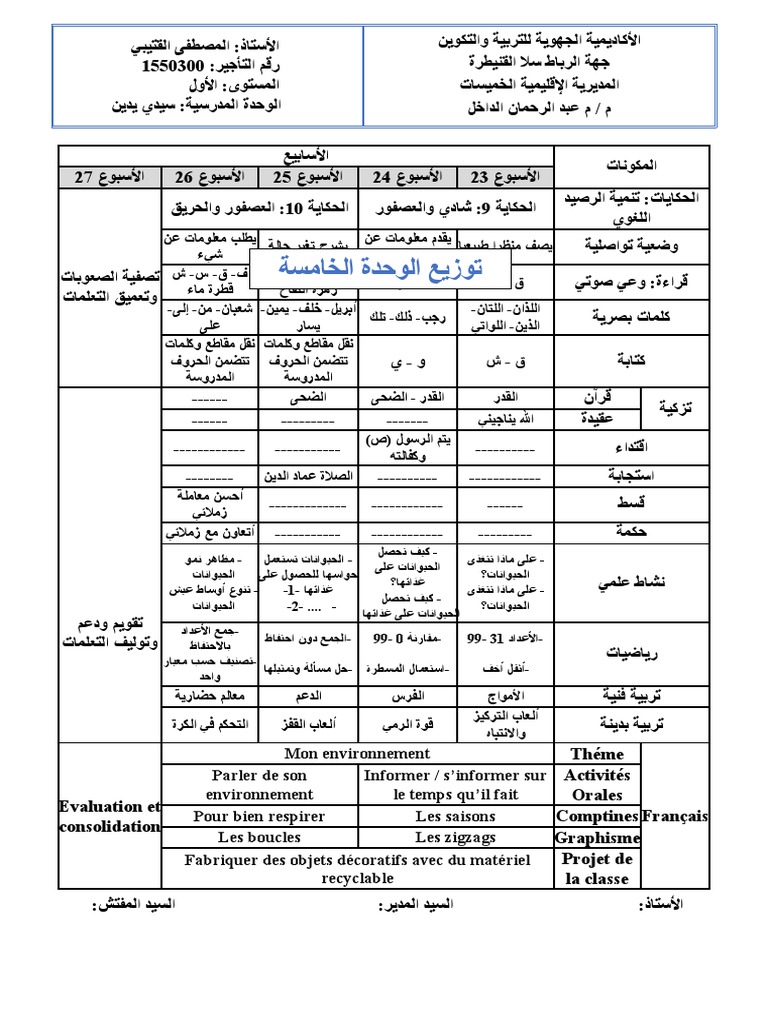 الأكاديمية الجهوية للتربية والتكوين
جهة الرباط سلا القنيطرة
المديرية الإقليمية الخميسات
م / م عبد الرحمان الداخل
الأستاذ: المصطفى القتيبي
رقم التأجير: 1550300
المستوى: الأول
الوحدة المدرسية: سيدي يدين
توزيع الوحدة الخامسة
المكونات
الأسابيع
الأسبوع 23
الأسبوع 24
الأسبوع 25
الأسبوع 26
الأسبوع 27
الحكايات: تنمية الرصيد
اللغوي
الحكاية 9: شادي والعصفور
الحكاية 10: العصفور والحريق
تصفية الصعوبات
وتعميق التعلمات
وضعية تواصلية
يصف منظرا طبيعيا
يقدم معلومات عن
يشرح تغير حالة
يطلب معلومات عن
شيء
قراءة: وعي صوتي
ق
ف- ق- س- ش
قطرة ماء
كلمات بصرية
اللذان- اللتان-
الذين- اللواتي
رجب- ذلك- تلك
أبريل- خلف- يمين-
يسار
شعبان- من- إلى-
على
كتابة
ق - ش
و - ي
نقل مقاطع وكلمات
تتضمن الحروف
المدروسة
نقل مقاطع وكلمات
تتضمن الحروف
المدروسة
تزكية
قرآن
القدر
القدر - الضحى
الضحى
------
عقيدة
الله يناجيني
-------
---------
------
اقتداء
----------
يتم الرسول (ص)
وكفالته
-----------
------------
استجابة
------------
----------
الصلاة عماد الدين
--------
قسط
------
------------
-------------
أحسن معاملة
زملائي
حكمة
---------
-----------
-----------
أتعاون مع زملائي
نشاط علمي
- على ماذا تتغذى
الحيوانات؟
- على ماذا تتغذى
الحيوانات؟
- كيف تحصل
الحيوانات على
غذائها؟
- كيف تحصل
الحيوانات على غذائها
- الحيوانات تستعمل
حواسها للحصول على
غذائها -1-
- .... -2-
- مظاهر نمو
الحيوانات
- تنوع أوساط عيش
الحيوانات
تقويم ودعم
وتوليف التعلمات
رياضيات
-الأعداد 31 -99
-أثقل أخف
-مقارنة 0 -99
-استعمال المسطرة
-الجمع دون احتفاظ
-حل مسألة وتمثيلها
-جمع الأعداد
بالاحتفاظ
-تصنيف حسب معيار
واحد
تربية فنية
الأمواج
الفرس
الدعم
معالم حضارية
تربية بدينة
ألعاب التركيز
والانتباه
قوة الرمي
ألعاب القفز
التحكم في الكرة
Français
Théme
Mon environnement
Activités
Orales
Informer / s'informer sur
le temps qu'il fait
Parler de son
environnement
Comptines
Les saisons
Pour bien respirer
Graphisme
Les zigzags
Les boucles
Projet de
la classe
Fabriquer des objets décoratifs avec du matériel
recyclable
Evaluation et
consolidation
الأستاذ:
السيد المدير:
السيد المفتش: